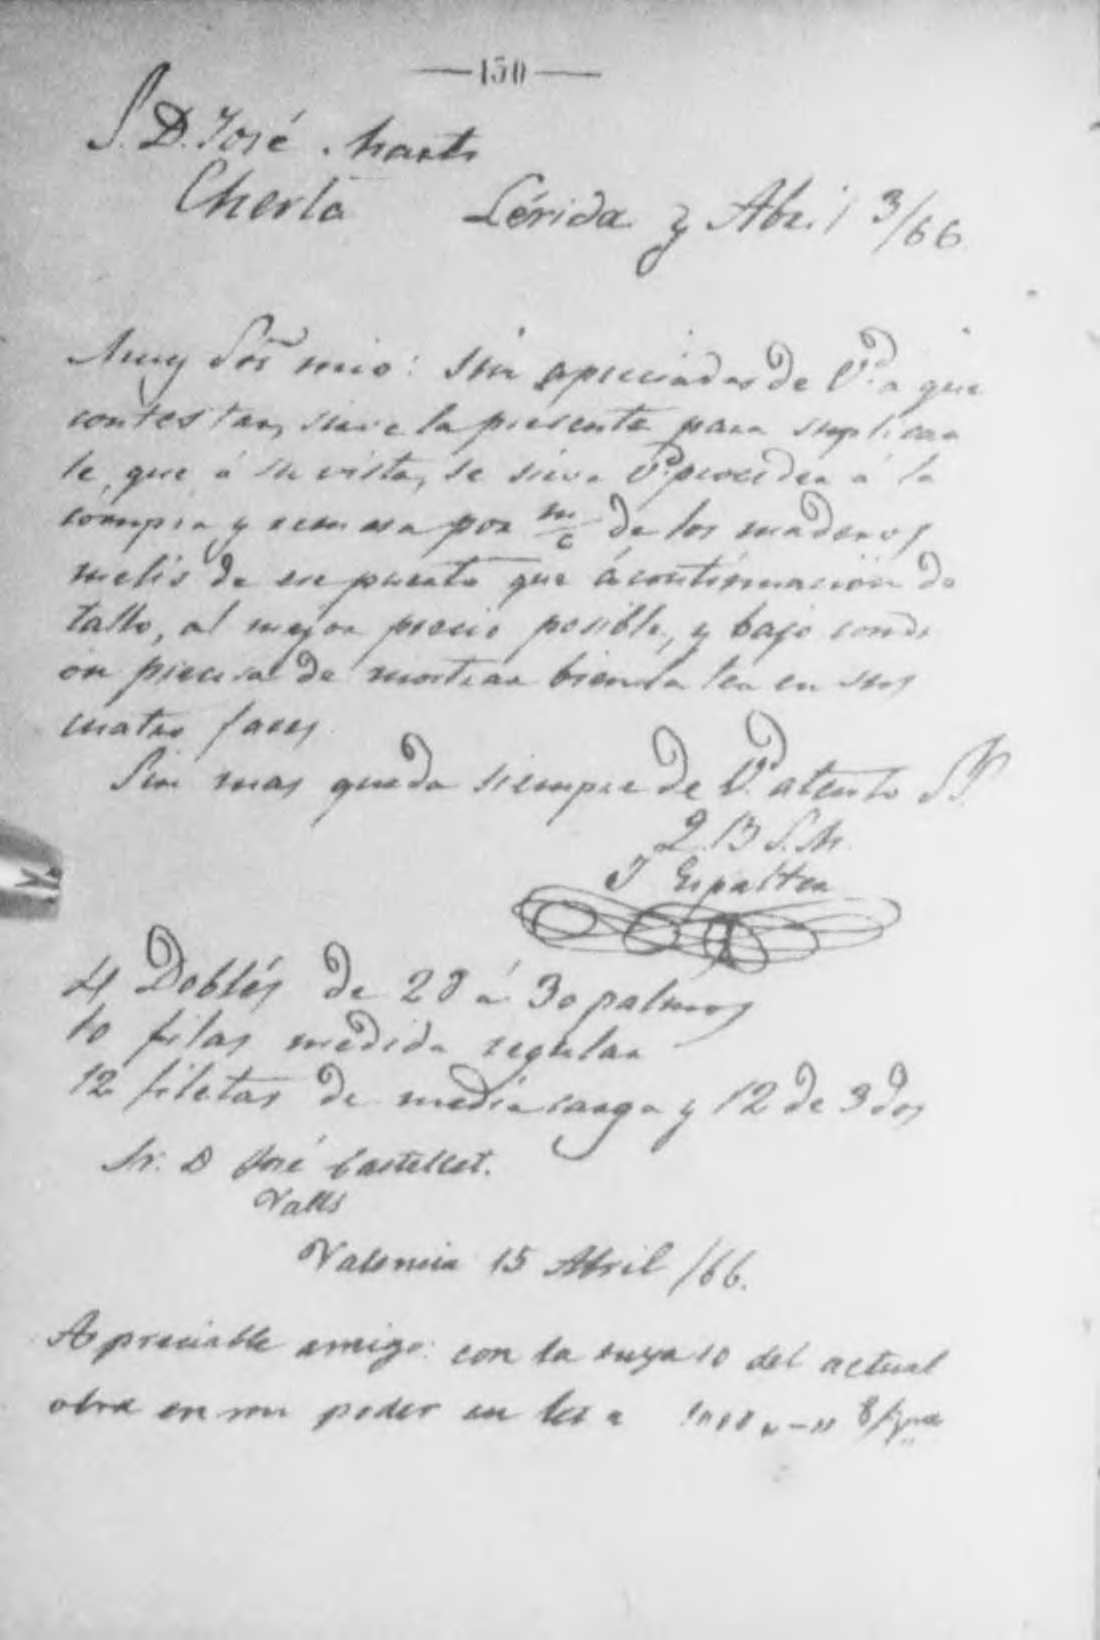 —150—
S. D. José Martí
Cherta Lérida y Abril 3/66
Muy Sor mio: Sin apreciadas de V.d a que
contestar, sirve la presente para suplicar
le, que á su vista, se sirva V.d proceder á la
compra y remesa por m/c de los maderos
melis de ese puerto que á continuación de
tallo, al mejor precio posible, y bajo condi
on precisa de mostrar bien la tea en sus
cuatro faces
Sin mas queda siempre de V.d atento S.S.
Q. B. S. M.
J Espaltea
4 Doblés de 28 á 30 palmos
10 filas medida regular
12 filetas de media carga y 12 de 3 dos
Sr. D José Castellet.
Valls
Valencia 15 Abril /66.
Apreciable amigo: con la suya 10 del actual
obra en mi poder su